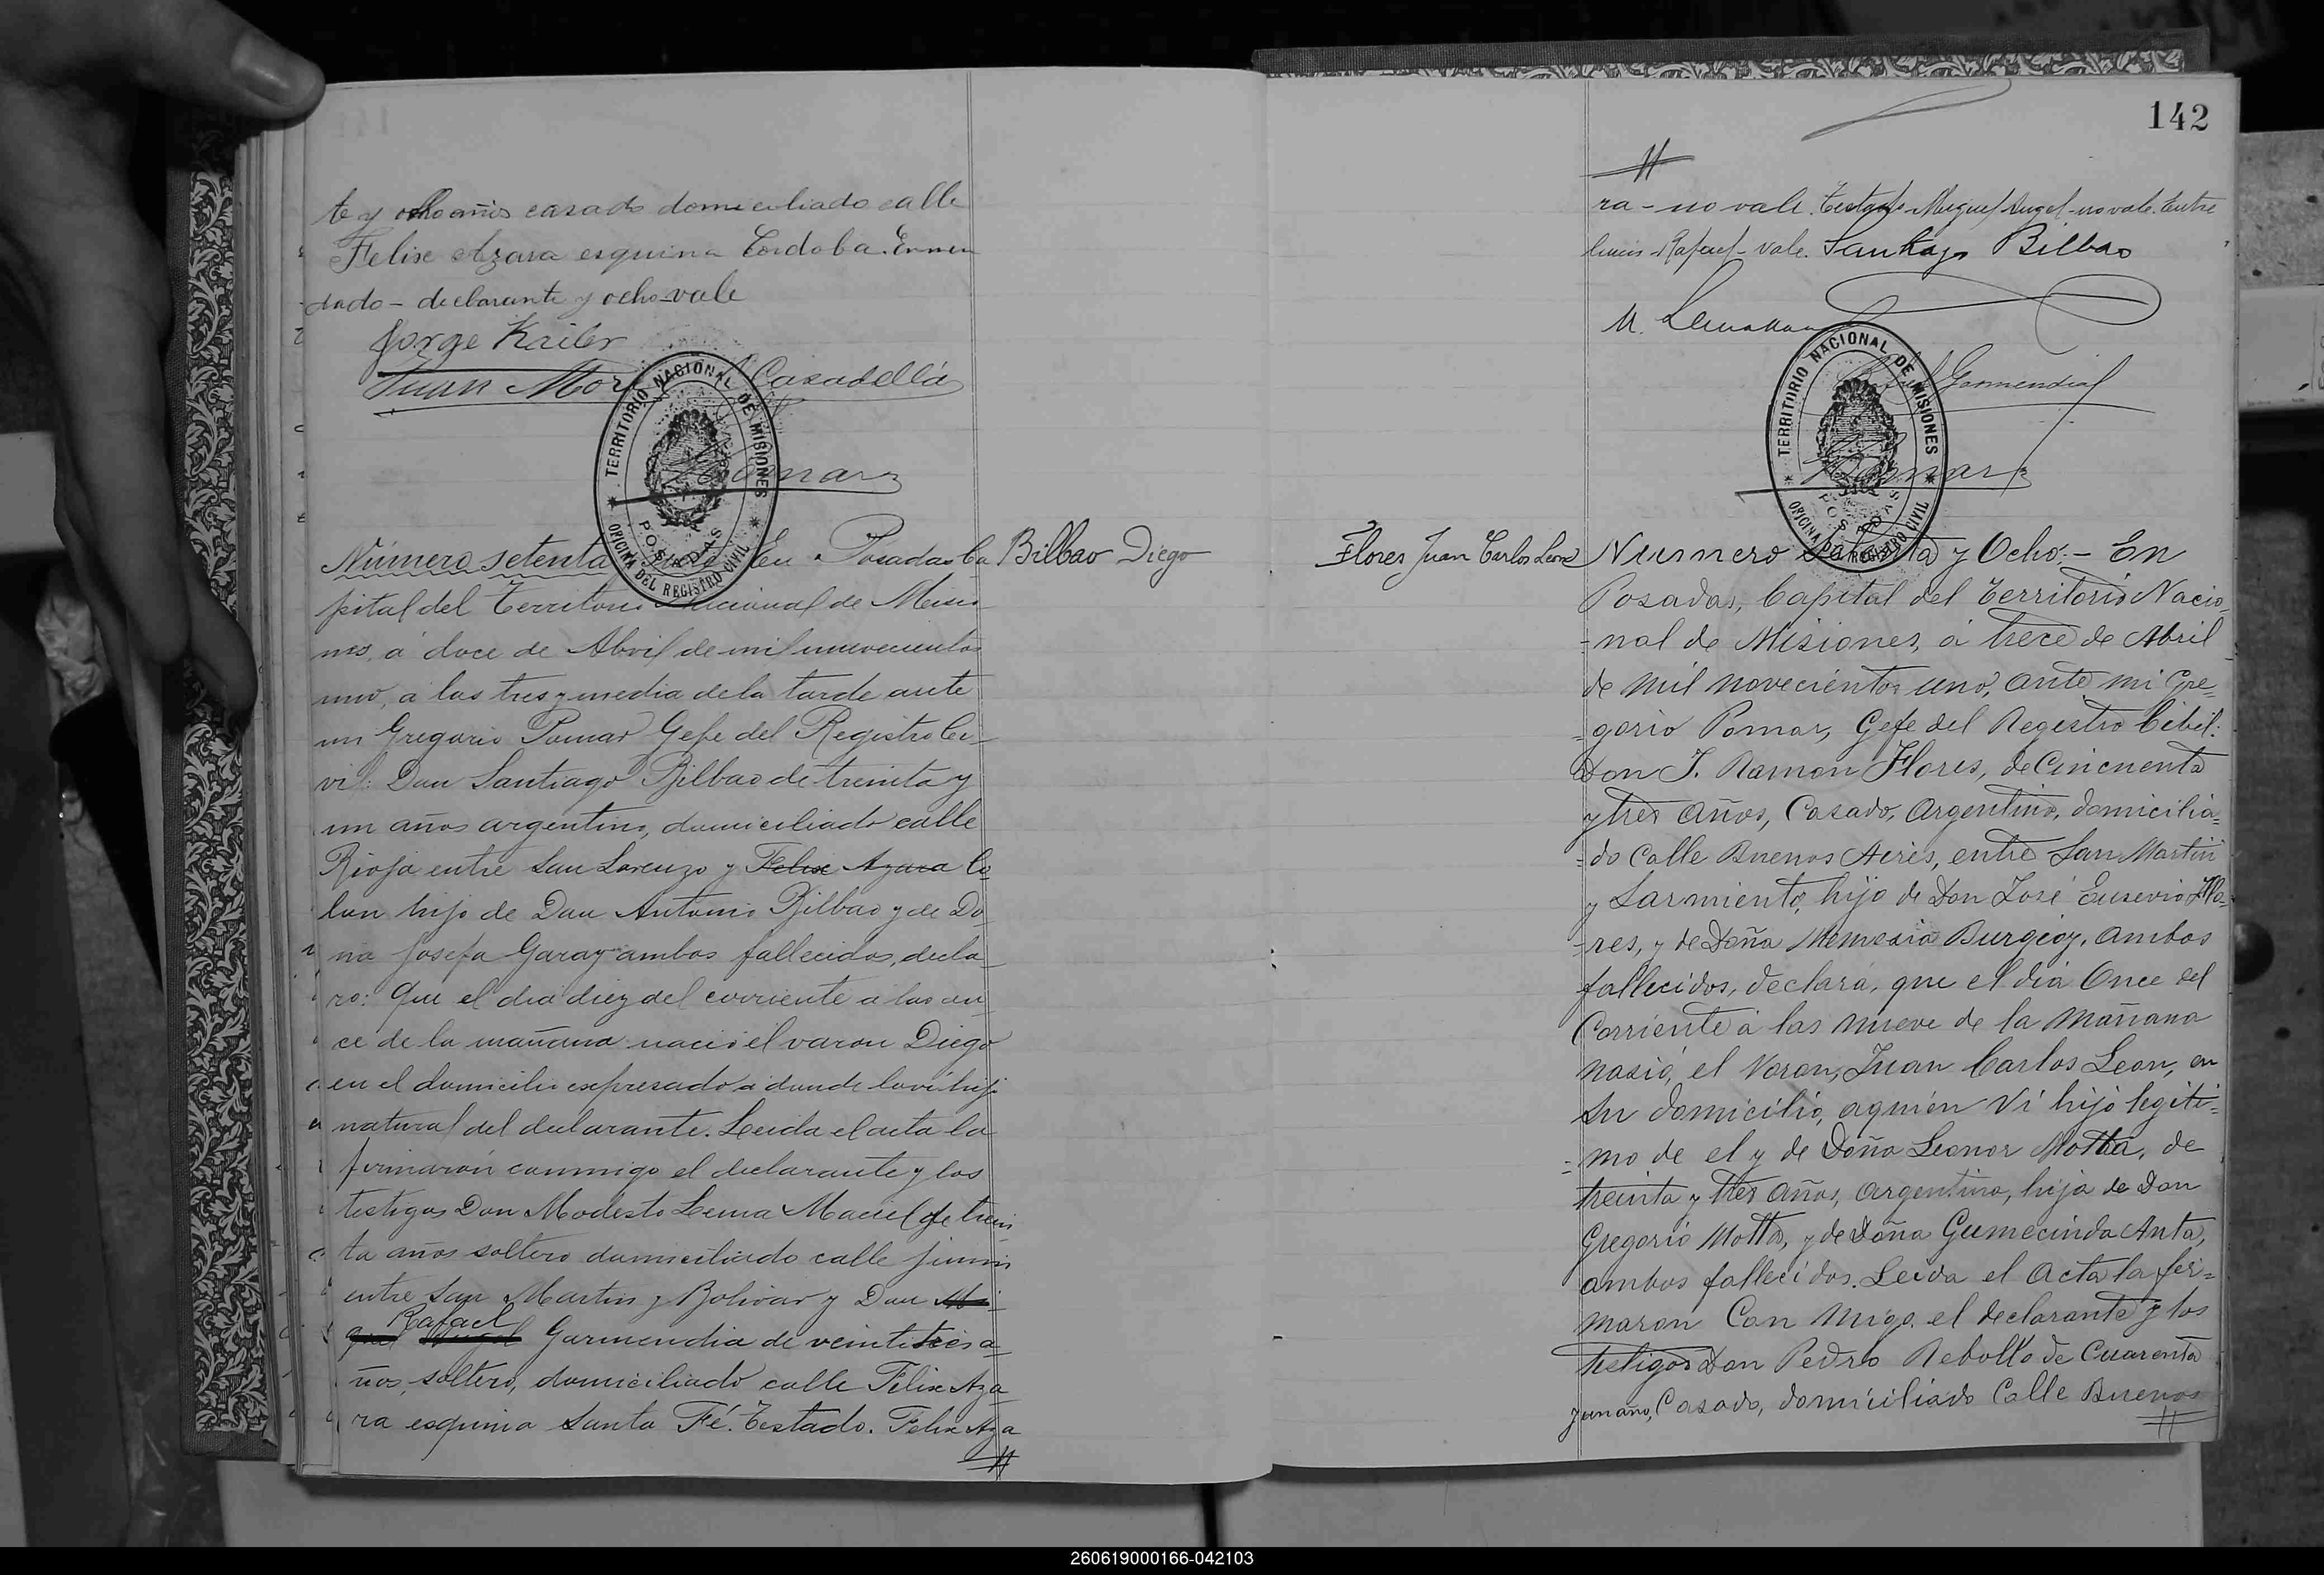 te y ocho años casado domiciliado calle
Felix Azara esquina Cordoba. Enmen
dado - declarante y ocho - vale
Jorge Kriler
Juan Mor Casadellá
TERRITORIO NACIONAL DE MISIONES
POSADAS
OFICINA DEL REGISTRO CIVIL
Pomar
Bilbao Diego
Número setenta y En Posadas Ca
pital del Territorio Nacional de Misio
nes, á doce de Abril de mil novecientos
uno, a las tres y media de la tarde ante
mi Gregorio Pomar Gefe del Registro Ci-
vil: Don Santiago Bilbao de treinta y
un años argentino, domiciliado calle
Rioja entre San Lorenzo y Felix Azara Co
lon hijo de Don Antonio Bilbao y de Do
ña Josefa Garay ambos fallecidos, decla-
ro: Que el dia diez del corriente a las on
ce de la mañana nació el varon Diego
en el domicilio expresado a donde lo vi hijo
natural del declarante. Leida el acta la
firmarón conmigo el declarante y los
testigos Don Modesto Lema Maciel de trein
ta años soltero domiciliado calle Junin
entre San Martin y Bolivar y Don Mi
guel Angel Rafael Garmendia de veintitres a
ños, soltero, domiciliado calle Felix Aza
ra esquina Santa Fé. Testado. Felix Aza
142
ra - no vale. Testado Miguel Angel - no vale. Entre
lineas - Rafael - vale. Santiago Bilbao
M. Lema
Rafael Garmendia
TERRITORIO NACIONAL DE MISIONES
POSADAS
OFICINA DEL REGISTRO CIVIL
Pomar
Flores Juan Carlos Leon
Número Setenta y Ocho. - En
Posadas, Capital del Territorio Nacio
-nal de Misiones, á trece de Abril
de mil novecientos uno, ante mi Gre=
=gorio Pomar, Gefe del Registro Cibil:
Don J. Ramon Flores, de Cincuenta
y tres Años, Casado, Argentino, domicilia=
=do Calle Buenos Aires, entre San Martin
y Sarmiento, hijo de Don José Eusevio Flo=
=res, y de Doña Nemesia Burgoz, ambos
fallecidos, declara, que el dia Once del
Corriente á las nueve de la Mañana
nasió, el Varon, Juan Carlos Leon, en
su domicilio, aquien Vi hijo legiti=
=mo de el y de Doña Leonor Motta, de
treinta y tres años, Argentina, hija de Don
Gregorio Motta, y de Doña Gumecinda Anta,
ambos fallecidos. Leida el Acta la fir=
maron Con Migo, el declarante y los
testigos Don Pedro Rebollo de Cuarenta
y un año, Casado, domiciliado Calle Buenos
260619000166-042103